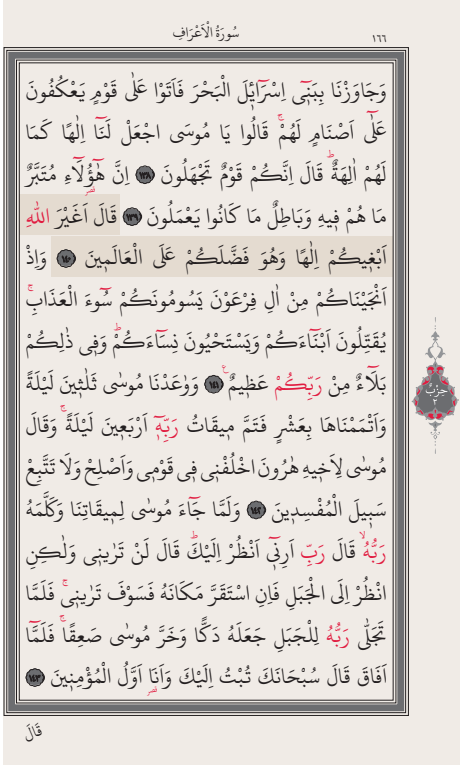 سُورَةُ الْاَعْرَافِ
١٦٦
وَجَاوَزْنَا بِبَنٓى اِسْرَٓائٖلَ الْبَحْرَ فَاَتَوْا عَلٰى قَوْمٍ يَعْكُفُونَ
عَلٰٓى اَصْنَامٍ لَهُمْۚ قَالُوا يَا مُوسَى اجْعَلْ لَنَٓا اِلٰهًا كَمَا
لَهُمْ اٰلِهَةٌۜ قَالَ اِنَّكُمْ قَوْمٌ تَجْهَلُونَ ﴿١٣٨﴾ اِنَّ هٰٓؤُلَٓاءِ مُتَبَّرٌ
مَا هُمْ فٖيهِ وَبَاطِلٌ مَا كَانُوا يَعْمَلُونَ ﴿١٣٩﴾ قَالَ اَغَيْرَ اللّٰهِ
اَبْغٖيكُمْ اِلٰهًا وَهُوَ فَضَّلَكُمْ عَلَى الْعَالَمٖينَ ﴿١٤٠﴾ وَاِذْ
اَنْجَيْنَاكُمْ مِنْ اٰلِ فِرْعَوْنَ يَسُومُونَكُمْ سُٓوءَ الْعَذَابِۚ
يُقَتِّلُونَ اَبْنَٓاءَكُمْ وَيَسْتَحْيُونَ نِسَٓاءَكُمْۜ وَفٖى ذٰلِكُمْ
بَلَٓاءٌ مِنْ رَبِّكُمْ عَظٖيمٌۚ ﴿١٤١﴾ وَوٰعَدْنَا مُوسٰى ثَلٰثٖينَ لَيْلَةً
وَاَتْمَمْنَاهَا بِعَشْرٍ فَتَمَّ مٖيقَاتُ رَبِّهٖٓ اَرْبَعٖينَ لَيْلَةًۚ وَقَالَ
مُوسٰى لِاَخٖيهِ هٰرُونَ اخْلُفْنٖى فٖى قَوْمٖى وَاَصْلِحْ وَلَا تَتَّبِعْ
سَبٖيلَ الْمُفْسِدٖينَ ﴿١٤٢﴾ وَلَمَّا جَٓاءَ مُوسٰى لِمٖيقَاتِنَا وَكَلَّمَهُ
رَبُّهُۙ قَالَ رَبِّ اَرِنٖٓى اَنْظُرْ اِلَيْكَۜ قَالَ لَنْ تَرٰينٖى وَلٰكِنِ
انْظُرْ اِلَى الْجَبَلِ فَاِنِ اسْتَقَرَّ مَكَانَهُ فَسَوْفَ تَرٰينٖىۚ فَلَمَّا
تَجَلّٰى رَبُّهُ لِلْجَبَلِ جَعَلَهُ دَكًّا وَخَرَّ مُوسٰى صَعِقًاۚ فَلَمَّٓا
اَفَاقَ قَالَ سُبْحَانَكَ تُبْتُ اِلَيْكَ وَاَنَا۬ اَوَّلُ الْمُؤْمِنٖينَ ﴿١٤٣﴾
حِزْب
٢
قَالَ